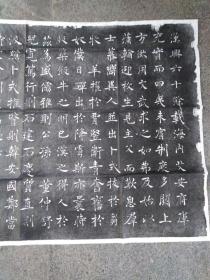 漢興六十餘載海內乂安府庫
充實而四夷未賓制度多闕上
方欲用文武求之如弗及始以
蒲輪迎枚生見主父而歎息群
士慕嚮異人並出卜式拔於芻
牧羊擢於賈豎衛青奮於
奴僕日磾出於降虜斯亦曩時
版築飯牛之朋已漢之得人於
茲為盛儒雅則公孫董仲舒
兒寬篤行則石建石慶質直則
汲黯卜式推賢則韓安國鄭當